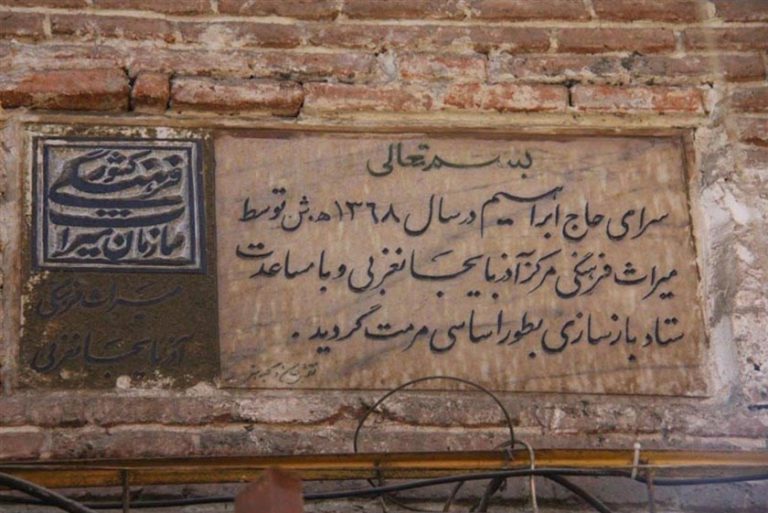 بسمه تعالی
سرای حاج ابراهیم در سال ۱۳۶۸ ه.ش توسط
میراث فرهنگی مرکز آذربایجانغربی و با مساعدت
ستاد بازسازی بطور اساسی مرمت گردید .
سازمان میراث فرهنگی کشور
میراث فرهنگی
آذربایجانغربی